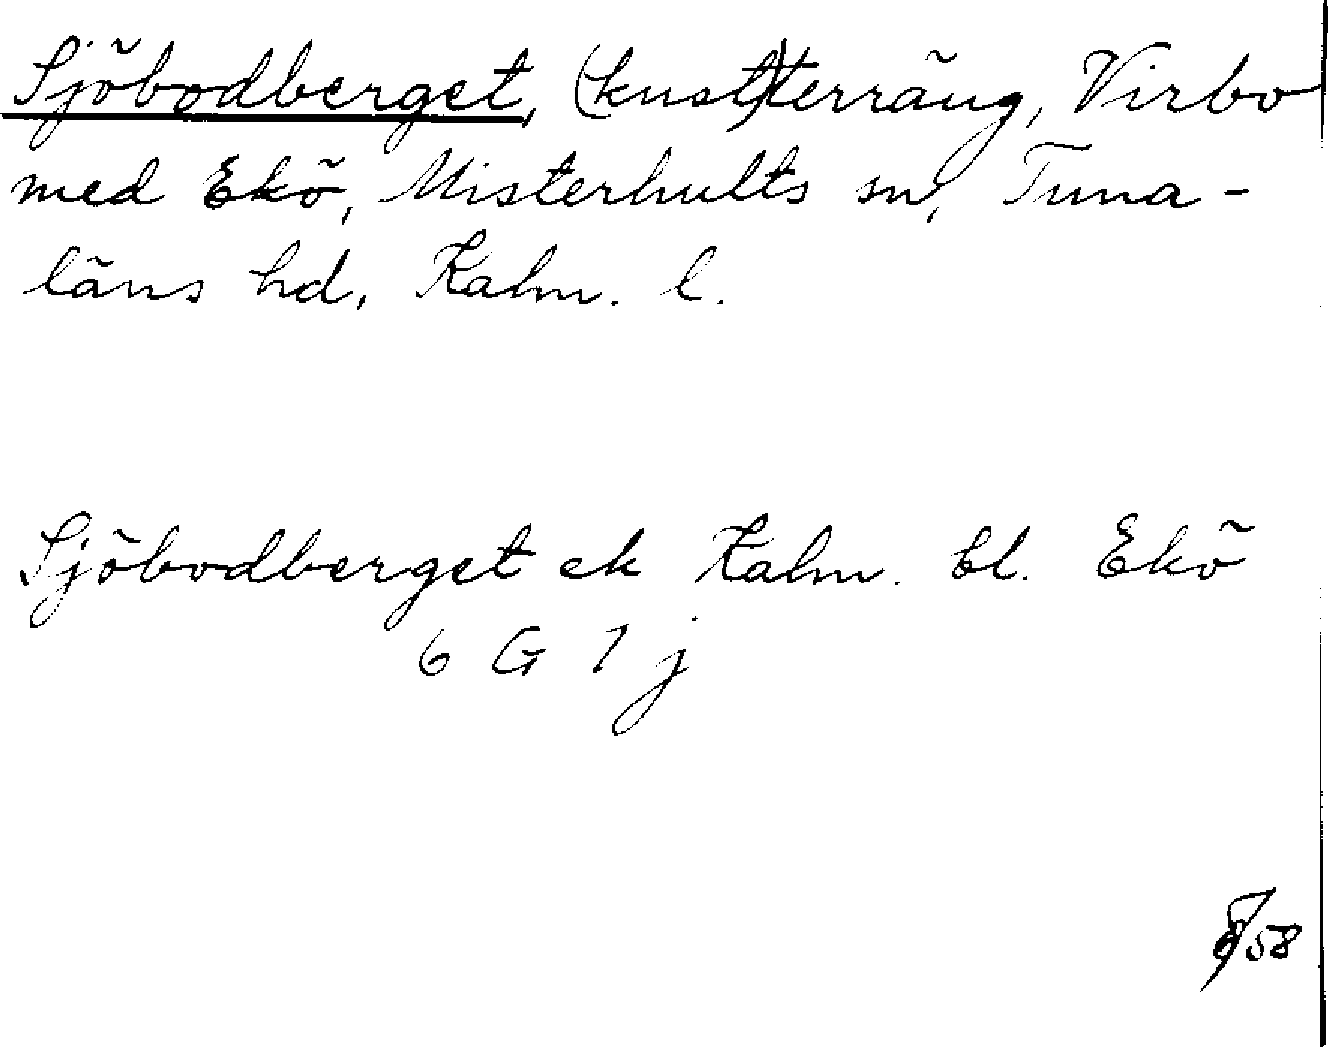 Sjöbodberget, (kust)terräng, Virbo
med Ekö, Misterhults sn, Tuna-
läns hd, Kalm. l.
Sjöbodberget ek Kalm. bl. Ekö
6 G 1 j
58